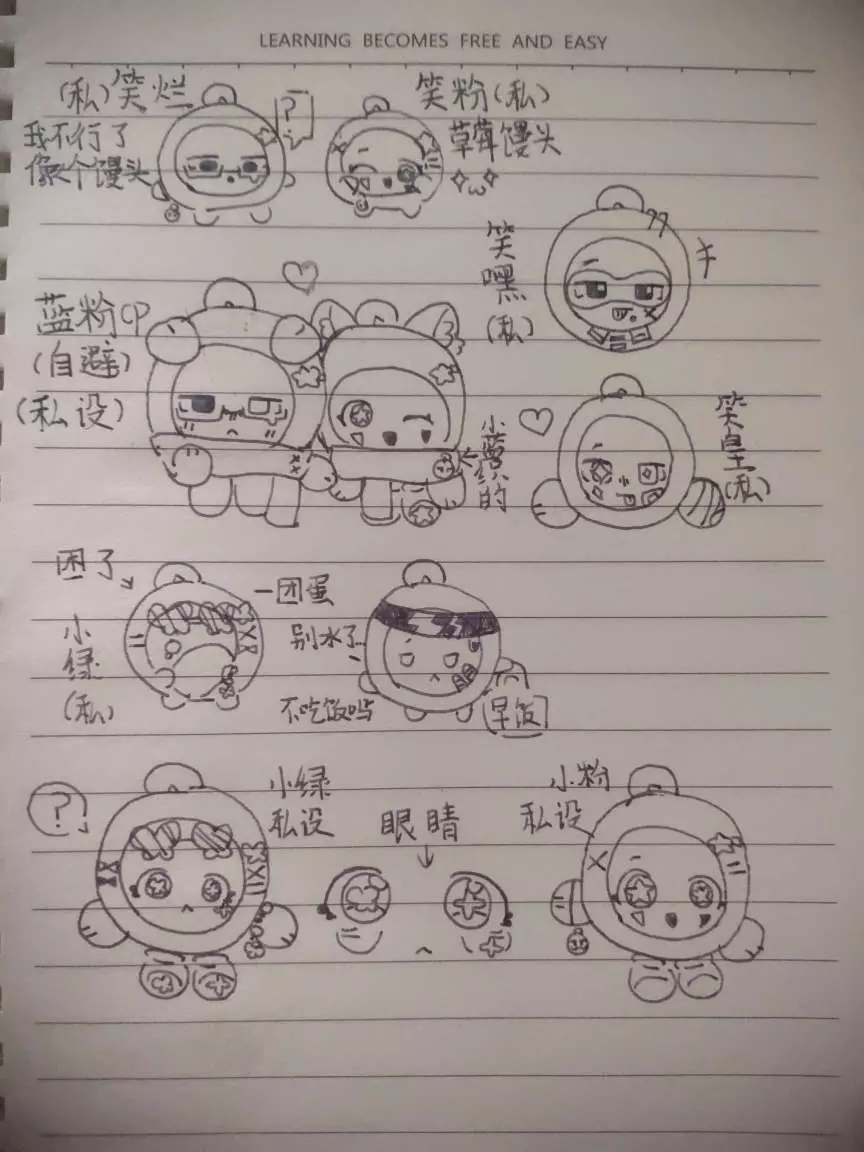 LEARNING BECOMES FREE AND EASY
(私)笑烂
我不行了
像个馒头
?
笑粉(私)
草莓馒头
笑嘿(私)
蓝粉CP
(自避)
(私设)
小蓝织的
笑皇(私)
困了
一团蛋
小绿(私)
别水了
不吃饭吗
早饭
?
小绿
私设
眼睛
小粉
私设